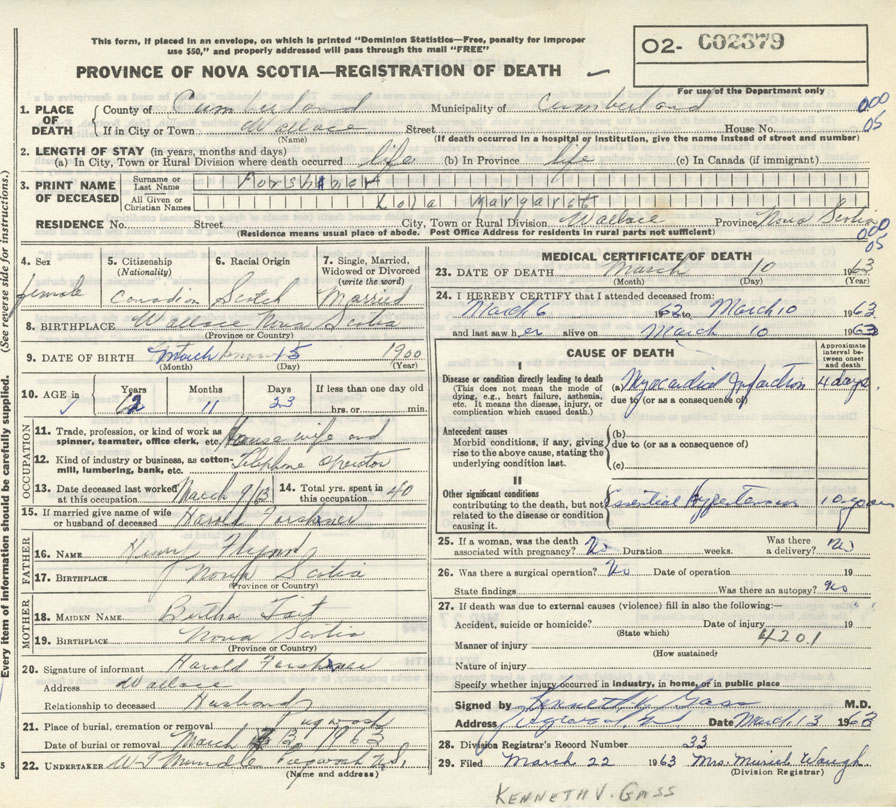 This form, if placed in an envelope, on which is printed "Dominion Statistics—Free, penalty for improper
use $50," and properly addressed will pass through the mail "FREE"
O2- C02379
PROVINCE OF NOVA SCOTIA—REGISTRATION OF DEATH
For use of the Department only
1. PLACE OF DEATH
County of Cumberland Municipality of Cumberland
000
05
If in City or Town Wallace Street House No.
(Name) (If death occurred in a hospital or institution, give the name instead of street and number)
2. LENGTH OF STAY (in years, months and days)
(a) In City, Town or Rural Division where death occurred life (b) In Province life (c) In Canada (if immigrant)
3. PRINT NAME OF DECEASED
Surname or Last Name Forshner
All Given or Christian Names Lola Margaret
RESIDENCE No. Street City, Town or Rural Division Wallace Province Nova Scotia
(Residence means usual place of abode. Post Office Address for residents in rural parts not sufficient)
000
05
4. Sex female
5. Citizenship (Nationality) Canadian
6. Racial Origin Scotch
7. Single, Married, Widowed or Divorced (write the word) Married
8. BIRTHPLACE Wallace Nova Scotia
(Province or Country)
9. DATE OF BIRTH March 15 1900
(Month) (Day) (Year)
10. AGE in Years Months 11 Days 23 If less than one day old
hrs. or min.
OCCUPATION
11. Trade, profession, or kind of work as spinner, teamster, office clerk, etc. House wife and
12. Kind of industry or business, as cotton-mill, lumbering, bank, etc. Telephone Operator
13. Date deceased last worked at this occupation March 9/63
14. Total yrs. spent in this occupation 40
15. If married give name of wife or husband of deceased Harold Forshner
FATHER
16. NAME Henry Flynn
17. BIRTHPLACE Nova Scotia
(Province or Country)
MOTHER
18. MAIDEN NAME Bertha Tait
19. BIRTHPLACE Nova Scotia
(Province or Country)
20. Signature of informant Harold Forshner
Address Wallace
Relationship to deceased Husband
21. Place of burial, cremation or removal Pugwash
Date of burial or removal March 13 1963
22. UNDERTAKER Mundle Pugwash N.S.
(Name and address)
MEDICAL CERTIFICATE OF DEATH
23. DATE OF DEATH March 10 1963
(Month) (Day) (Year)
24. I HEREBY CERTIFY that I attended deceased from:
March 6 1963 to March 10 1963
and last saw her alive on March 10 1963
CAUSE OF DEATH
Approximate interval between onset and death
I
Disease or condition directly leading to death
(This does not mean the mode of dying, e.g., heart failure, asthenia, etc. It means the disease, injury, or complication which caused death.)
(a) Myocardial Infarction 4 days.
due to (or as a consequence of)
Antecedent causes
Morbid conditions, if any, giving rise to the above cause, stating the underlying condition last.
(b)
due to (or as a consequence of)
(c)
II
Other significant conditions
contributing to the death, but not related to the disease or condition causing it.
Essential Hypertension 10 years
25. If a woman, was the death associated with pregnancy? No Duration weeks. Was there a delivery? No
26. Was there a surgical operation? No Date of operation 19
State findings Was there an autopsy? No
27. If death was due to external causes (violence) fill in also the following:—
Accident, suicide or homicide? Date of injury 19
(State which)
4201
Manner of injury
(How sustained)
Nature of injury
Specify whether injury occurred in industry, in home, or in public place
Signed by Kenneth V. Gass M.D.
Address Date March 13 1963
28. Division Registrar's Record Number 33
29. Filed March 22 1963 Mrs. Muriel Waugh
(Division Registrar)
KENNETH V. GASS
Every item of information should be carefully supplied. (See reverse side for instructions.)